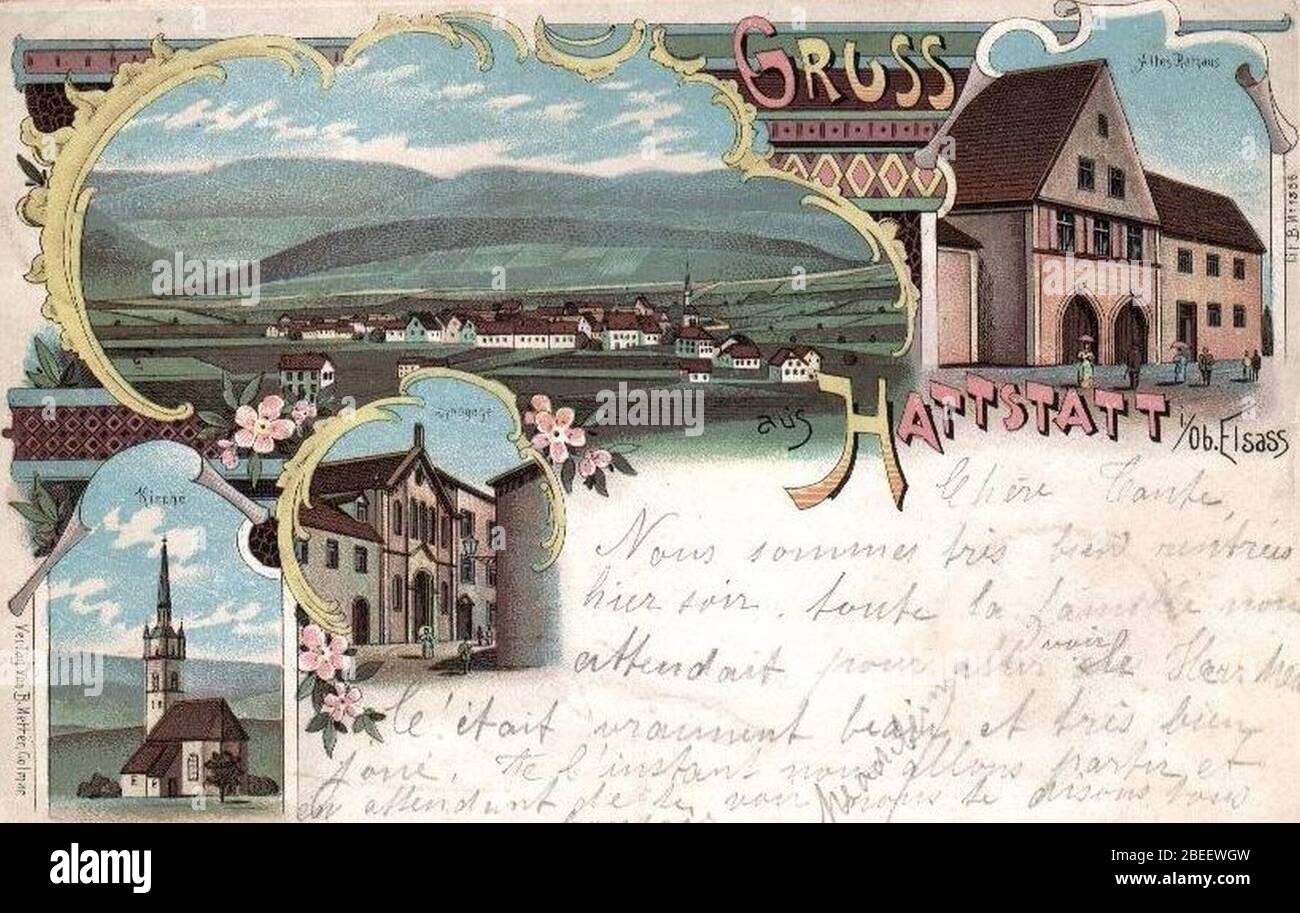 GRUSS
Altes Rathaus
aus HATTSTATT i/Ob. Elsass
Synagoge
Kirche
Chère Tante,
Nous sommes très bien rentrées
hier soir. toute la famille nous
attendait pour aller voir le Herr
C'était vraiment beau et très bien
joué. A l'instant nous allons partir et
en attendant de te voir nous te disons tous
alamy
Image ID: 2BEEWGW
www.alamy.com